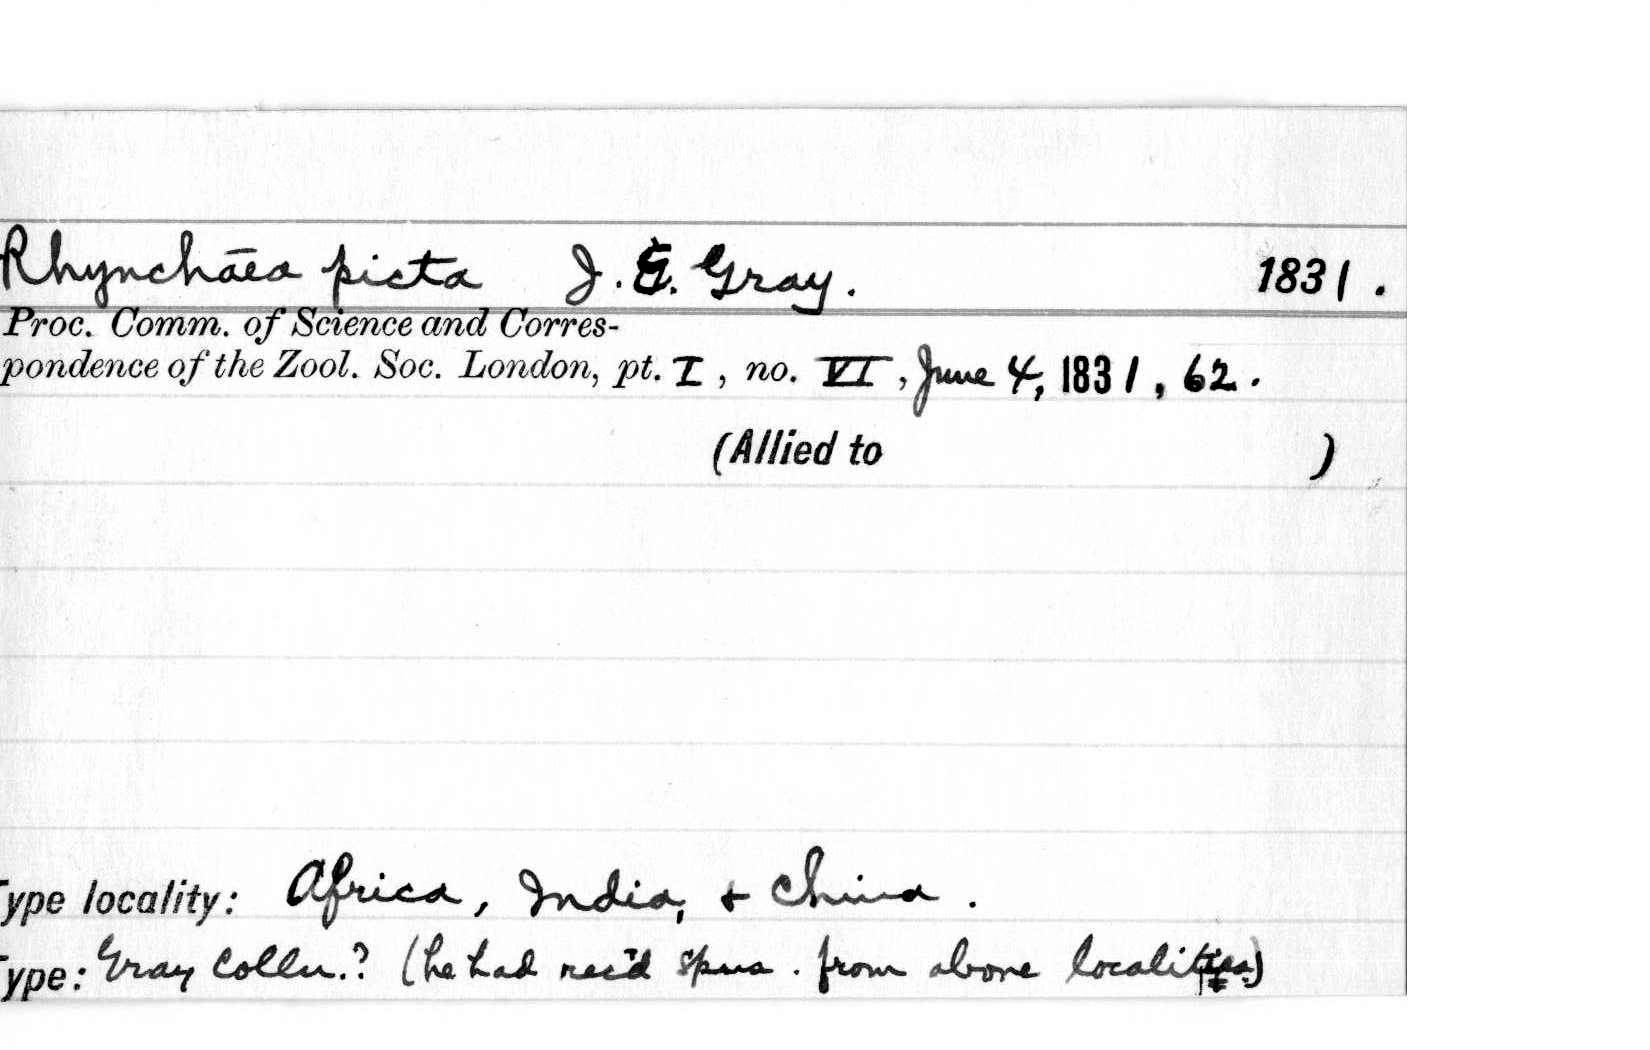 Rhynchāea picta J. E. Gray. 1831.
Proc. Comm. of Science and Corres-
pondence of the Zool. Soc. London, pt. I, no. VI, June 4, 1831, 62.
(Allied to )
Type locality: Africa, India, + China.
Type: Gray Colln.? (he had rec'd spns. from above localities)